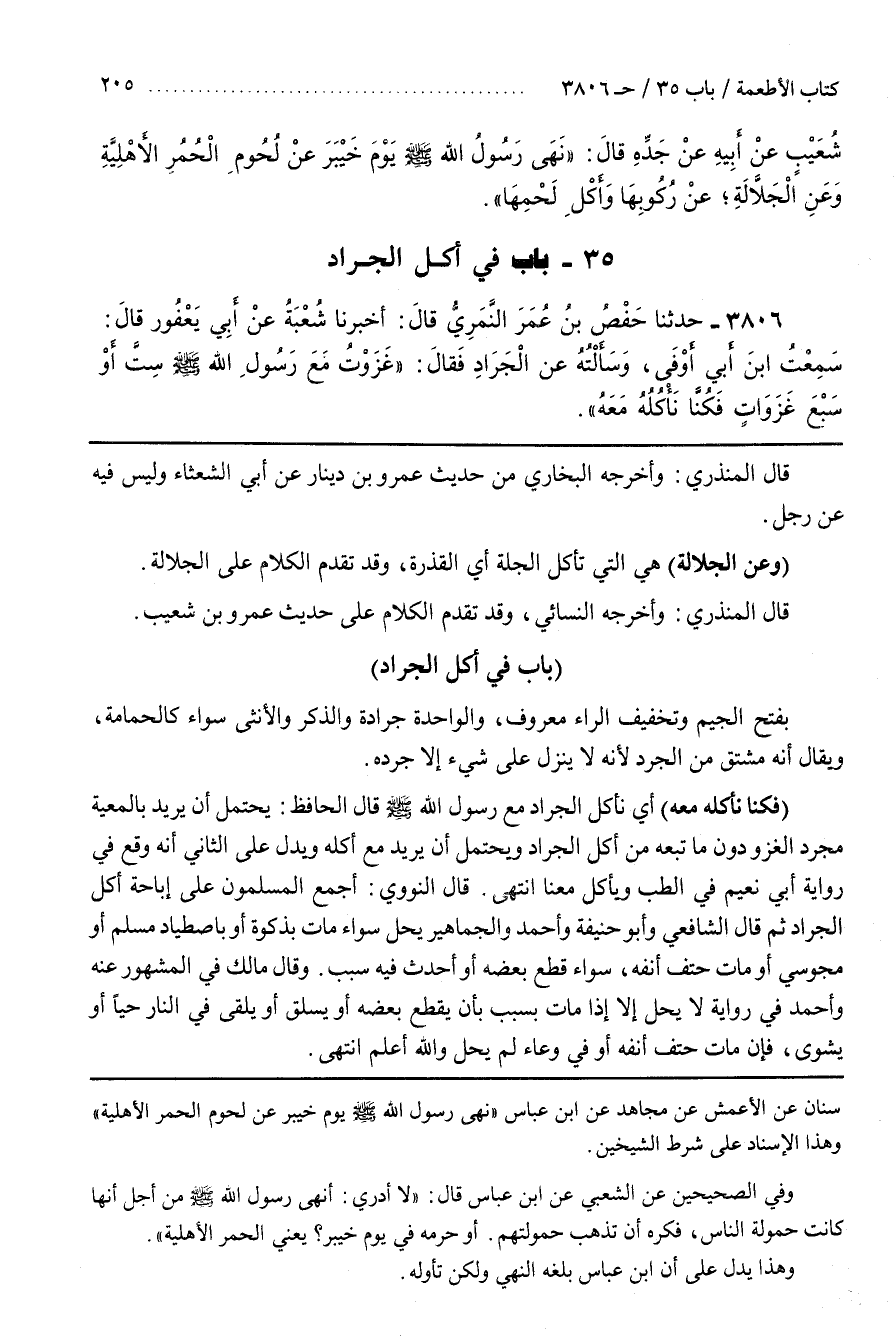 كتاب الأطعمة / باب ٣٥ / حـ ٣٨٠٦ ........................................... ٢٠٥
شُعَيْبٍ عنْ أَبِيهِ عنْ جَدِّهِ قالَ: «نَهَى رَسُولُ الله ﷺ يَوْمَ خَيْبَرَ عنْ لُحُومِ الْحُمُرِ الأَهْلِيَّةِ
وَعَنِ الْجَلَّالَةِ؛ عنْ رُكُوبِهَا وَأَكْلِ لَحْمِهَا».
٣٥ - باب في أكـل الجـراد
٣٨٠٦ - حدثنا حَفْصُ بنُ عُمَرَ النَّمَرِيُّ قالَ: أخبرنا شُعْبَةُ عنْ أَبِي يَعْفُور قالَ:
سَمِعْتُ ابنَ أَبي أَوْفَى، وَسَأَلْتُهُ عن الْجَرَادِ فَقالَ: «غَزَوْتُ مَعَ رَسُولِ الله ﷺ سِتَّ أَوْ
سَبْعَ غَزَوَاتٍ فَكُنَّا نَأْكُلُهُ مَعَهُ».
قال المنذري: وأخرجه البخاري من حديث عمرو بن دينار عن أبي الشعثاء وليس فيه
عن رجل.
(وعن الجلالة) هي التي تأكل الجلة أي القذرة، وقد تقدم الكلام على الجلالة.
قال المنذري: وأخرجه النسائي، وقد تقدم الكلام على حديث عمرو بن شعيب.
(باب في أكل الجراد)
بفتح الجيم وتخفيف الراء معروف، والواحدة جرادة والذكر والأنثى سواء كالحمامة،
ويقال أنه مشتق من الجرد لأنه لا ينزل على شيء إلا جرده.
(فكنا نأكله معه) أي نأكل الجراد مع رسول الله ﷺ قال الحافظ: يحتمل أن يريد بالمعية
مجرد الغزو دون ما تبعه من أكل الجراد ويحتمل أن يريد مع أكله ويدل على الثاني أنه وقع في
رواية أبي نعيم في الطب ويأكل معنا انتهى. قال النووي: أجمع المسلمون على إباحة أكل
الجراد ثم قال الشافعي وأبو حنيفة وأحمد والجماهير يحل سواء مات بذكوة أو باصطياد مسلم أو
مجوسي أو مات حتف أنفه، سواء قطع بعضه أو أحدث فيه سبب. وقال مالك في المشهور عنه
وأحمد في رواية لا يحل إلا إذا مات بسبب بأن يقطع بعضه أو يسلق أو يلقى في النار حياً أو
يشوى، فإن مات حتف أنفه أو في وعاء لم يحل والله أعلم انتهى.
سنان عن الأعمش عن مجاهد عن ابن عباس «نهى رسول الله ﷺ يوم خيبر عن لحوم الحمر الأهلية»
وهذا الإسناد على شرط الشيخين.
وفي الصحيحين عن الشعبي عن ابن عباس قال: «لا أدري: أنهى رسول الله ﷺ من أجل أنها
كانت حمولة الناس، فكره أن تذهب حمولتهم. أو حرمه في يوم خيبر؟ يعني الحمر الأهلية».
وهذا يدل على أن ابن عباس بلغه النهي ولكن تأوله.